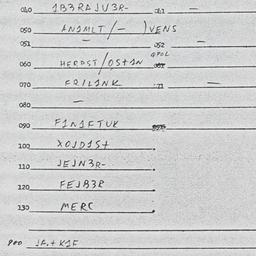 040 1B3RAJV3R- 041 —
050 ANAMLT/— )VENS
051 — 052 —
060 HERDST/OSTAN
070 FRILANK 71 —
080 —
090 FINIFTUK
100 XOJDIST
110 JEJN3R-
120 FEJB3R
130 MERC
JA.+KIF